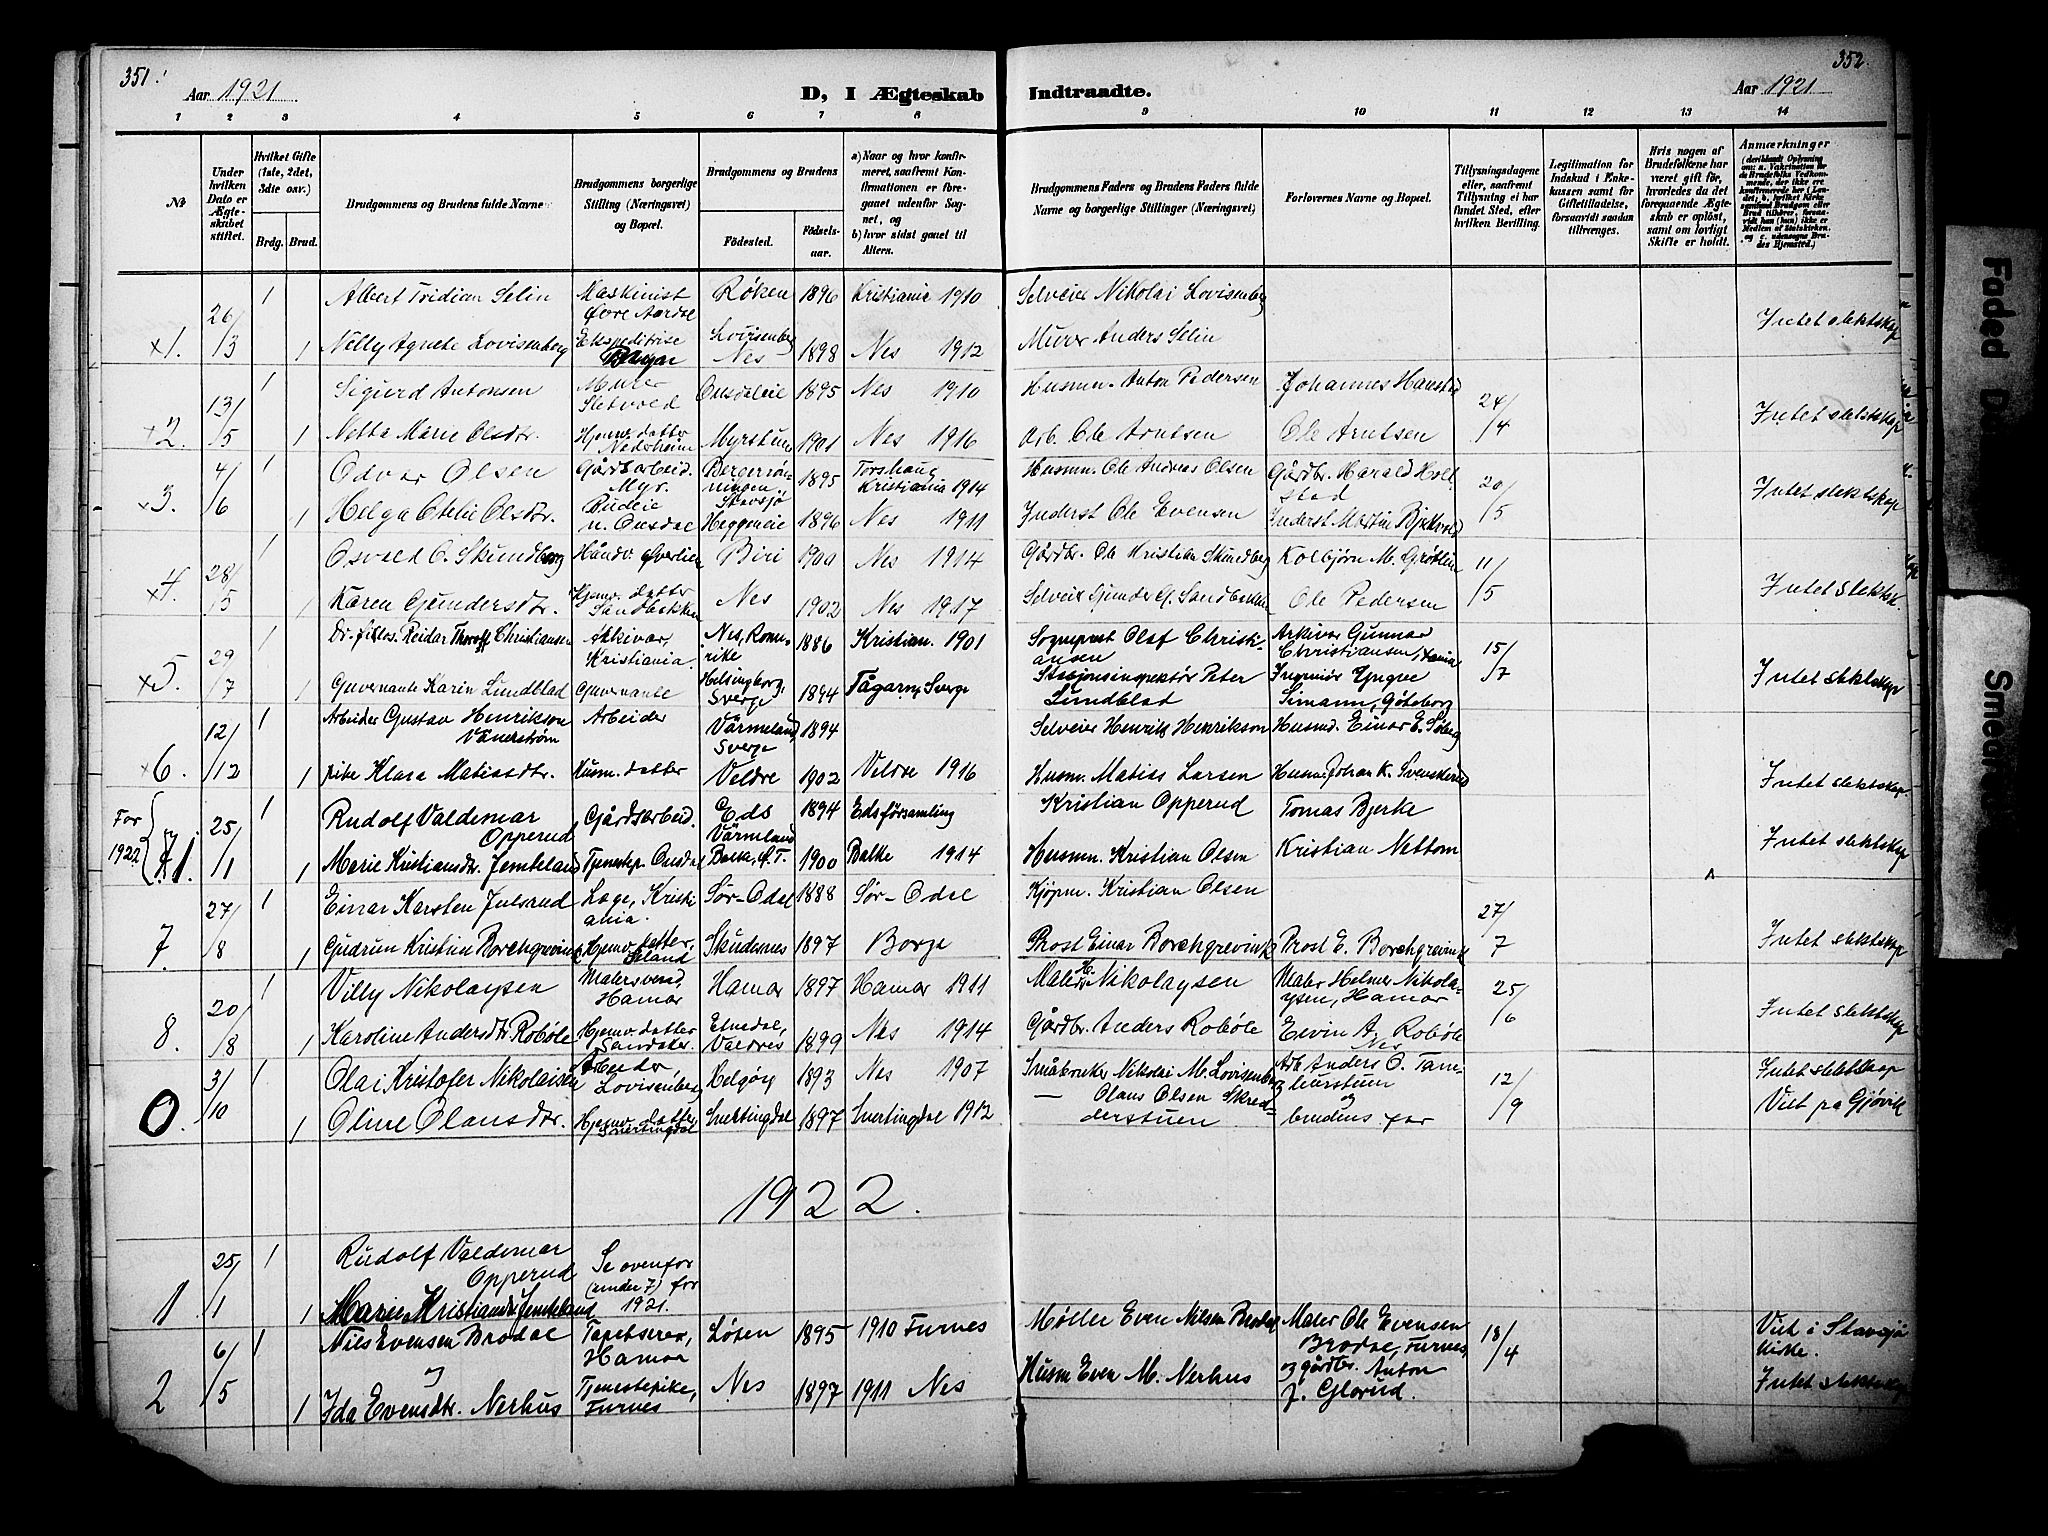 351.
352.
Aar 1921
D, I Ægteskab Indtraadte.
Aar 1921
1 2 3 4 5 6 7 8 9 10 11 12 13 14
№
Under hvilken Dato er Ægteskabet stiftet.
Hvilket Gifte (1ste, 2det, 3die osv.)
Brdg. Brud.
Brudgommens og Brudens fulde Navne
Brudgommens borgerlige Stilling (Næringsvei) og Bopæl.
Brudgommens og Brudens
Födested.
Födselsaar.
a) Naar og hvor konfirmeret, saafremt Konfirmationen er foregaaet udenfor Sognet, og
b) hvor sidst gaaet til Alters.
Brudgommens Faders og Brudens Faders fulde Navne og borgerlige Stillinger (Næringsvei)
Forlovernes Navne og Bopæl.
Tillysningsdagene eller, saafremt Tillysning ei har fundet Sted, efter hvilken Bevilling.
Legitimation for Indskud i Enkekassen samt for Giftetilladelse, forsaavidt saadan tiltrænges.
Hvis nogen af Brudefolkene har været gift för, hvorledes da det foregaaende Ægteskab er oplöst, samt om lovligt Skifte er holdt.
Anmærkninger
x1. 26/3 1 Albert Tridian Selin Maskinist Øvre Aardal Røken 1896 Kristiania 1910 Selveier Nikolai Lovisenberg
1 Nelly Agnete Lovisenberg Ekspeditrise Lovisenberg Nes 1898 Nes 1912 Murer Anders Selin Intet slektskap
x2. 13/5 1 Sigurd Antonsen Murer Sletvold Onsdaleie 1895 Nes 1910 Husmn. Anton Pedersen Johannes 24/4
1 Netta Marie Olsdtr. Hjemv. datter Myrstuen 1901 Nes 1916 Arb. Ole Arntsen Ole Arntsen Intet slektskap
x3. 4/6 1 Odvar Olsen Gårdsarbeid. Myr. 1895 Torshaug Kristiania 1914 Husmn. Ole Andreas Olsen Gårdbr. Harald Holstad 20/5
1 Helga Otelie Olsdtr. Budeie n. Onsdal Stavsjø Heggeneie 1896 Nes 1911 Inderst Ole Evensen Inderst Martin Intet slektskap
x4. 28/5 1 Osvald O. Skundberg Håndv. Øverlien Biri 1900 Nes 1914 Gårdbr. Ole Kristian Skundberg Kolbjørn M. Grøtlien 11/5
1 Karen Gundersdtr. Hjemv. datter Sandbakken Nes 1902 Nes 1917 Selveier Gunder G. Sandbakken Ole Pedersen Intet slektsk.
x5. 29/7 1 Dr. filos. Reidar Thoralf Christiansen Arkivar, Kristiania. Nes, Romerike 1886 Kristian. 1901 Sogneprest Olaf Christiansen Arkivar Gunnar Christiansen, Xania 15/7
Guvernante Karin Lundblad Guvernante Helsingborg, Sverge 1894 Fågarp, Sverge Stasjonsinspektør Peter Lundblad Ingeniør Yngve Simann, Göteborg Intet slektskap
x6. 12/12 1 Arbeider Gustav Henrikson Vänerström Arbeider Värmeland, Sverge 1894 Selveier Henrik Henrikson Husmd. Einar E. Søberg
1 pike Klara Matiasdtr. Husm. datter Veldre 1902 Veldre 1916 Husm. Matias Larsen Husm. Johan K. Svenskerud Intet slektskap.
For 1922 1. 25/1 1 Rudolf Valdemar Opperud Gårdsarbeid. Eds Värmland 1894 Edsförsamling Kristian Opperud Tomas Bjerke
1 Marie Kristiansdtr. Jemteland Tjenestep. Onsdal Balke, Ø.T. 1900 Balke 1914 Husmn. Kristian Olsen Kristian Nettom Intet slektskap
7. 27/8 1 Einar Karsten Julsrud Læge, Kristiania. Sør-Odal 1888 Sør-Odal Kjøpm. Kristian Olsen 27/7
1 Gudrun Kristine Borchgrevink Hjemv. datter, Skudesnes 1897 Borge Prost Einar Borchgrevink Prost E. Borchgrevink Intet slektskap
8. 20/8 1 Villy Nikolaysen Malersvend, Hamar Hamar 1897 Hamar 1911 Maler H. Nikolaysen Maler Helmer Nikolaysen, Hamar 25/6
1 Karoline Andersdtr. Robøle Hjemv. datter Sandaker. Etnedal, Valdres 1899 Nes 1914 Gårdbr. Anders Robøle Ervin A. Robøle Nes Intet slektskap
0 3/10 1 Olai Kristofer Nikolaisen Arbeider Lovisenberg Helgøy 1893 Nes 1907 Småbruker Nikolai M. Lovisenberg Arb. Anders O. 12/9 Intet slektskap
1 Oline Olausdtr. Hjemv. datter Snertingdal Snertingdal 1897 Snertingdal 1912 — Olaus Olsen Skredderstuen og brudens far Viet på Gjøvik
1922.
1 25/1 1 Rudolf Valdemar Opperud Se ovenfor (under 7) for 1921.
1 Marie Kristiansdtr. Jemteland
2 6/5 1 Nils Evensen Brodal Tapetserer, Hamar Løten 1895 1910 Furnes Møller Even Nilsen Brodal Maler Ole Evensen Brodal, Furnes, 18/4 Viet i Stavsjø kirke.
og
1 Ida Evensdtr. Nerhus Tjenestepike, Furnes Nes 1897 1911 Nes Husm Even M. Nerhus og gårdbr. Anton J. Glorud. Intet slektskap
Faded D
Sme